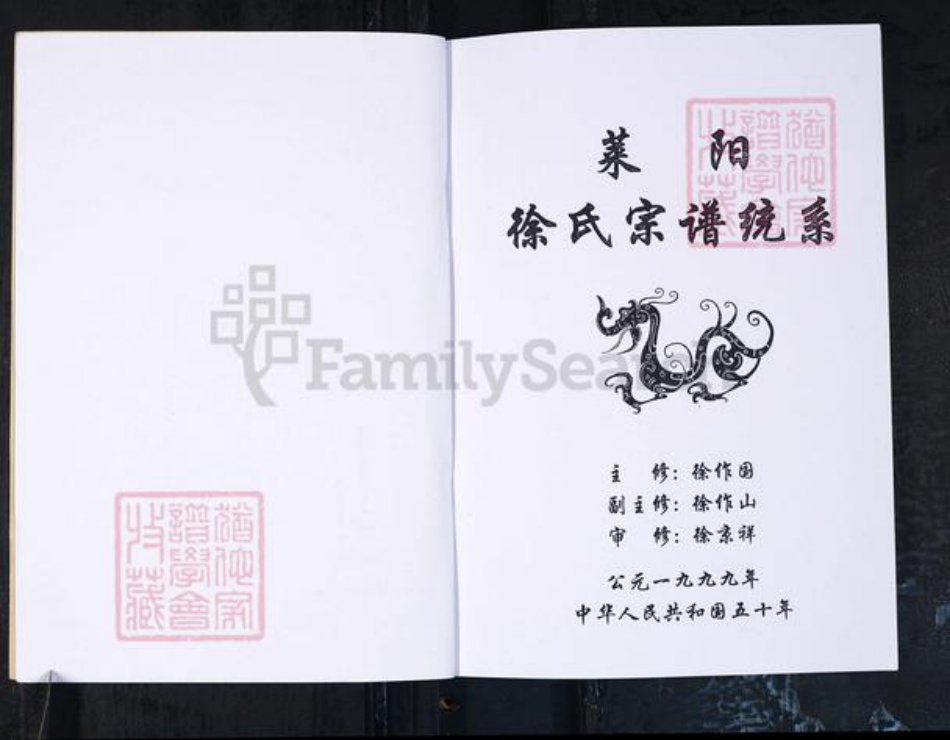 莱 阳
徐氏宗谱统系
主 修：徐作国
副主修：徐作山
审 修：徐京祥
公元一九九九年
中华人民共和国五十年
FamilySearch
犹他家
谱学会
收藏